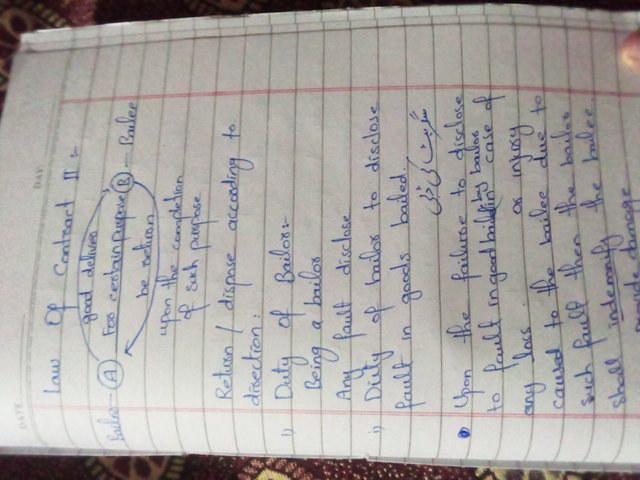 DAY:
DATE:
Law Of Contract II :-
good deliver
Bailor - A For certain purpose B - Bailee
be return
upon the completion
of such purpose
Return / dispose according to
direction :
i) Duty of Bailor :-
Being a bailor
Any fault disclose
i) Duty of bailor to disclose
fault in goods bailed.
Upon the failure to disclose
to fault in good by bailor case of
any loss or injury
caused to the bailee due to
such fault then the bailor
shall indemnify the bailee.
provide damage